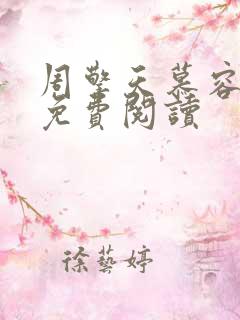 周擎天慕容
免費閱讀
徐藝婷